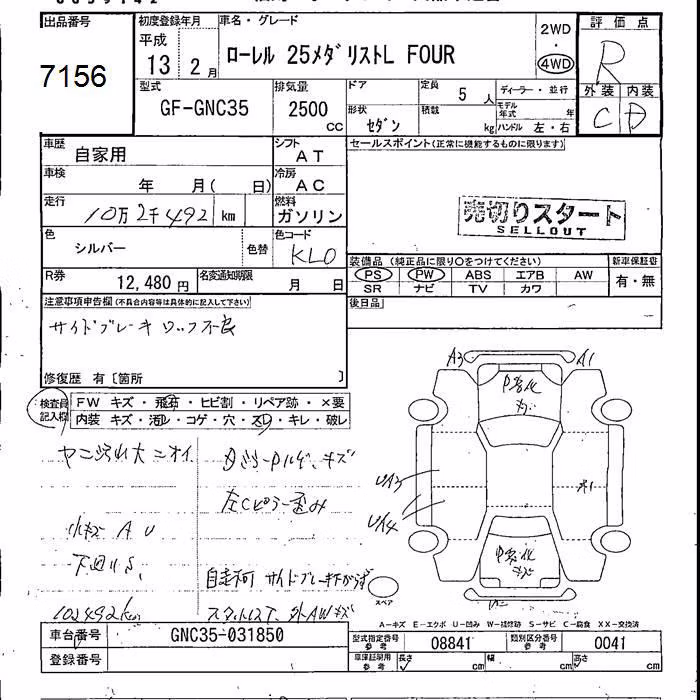 出品番号
7156
初度登録年月
平成
13 2月
車名・グレード
ローレル 25メダリストL FOUR
2WD
4WD
評価点
R
外装 内装
C D
型式
GF-GNC35
排気量
2500
CC
ドア
形状
セダン
定員
5 人
積載
kg
ディーラー・並行
モデル年式 年
ハンドル 左・右
車歴
自家用
シフト
AT
車検
年 月( 日)
冷房
AC
走行
10万2千492 km
燃料
ガソリン
色
シルバー
色替
色コード
KL0
R券
12,480円
名変通知期限
月 日
セールスポイント(正常に機能するものに限ります)
売切りスタート
SELLOUT
装備品 (純正品に限り○をつけてください)
PS PW ABS エアB AW
SR ナビ TV カワ
新車保証書
有・無
後日品
注意事項申告欄(不具合内容等は具体的に記入して下さい)
サイドブレーキロック不良
修復歴 有〔箇所 〕
検査員記入欄
FW キズ・飛石・ヒビ割・リペア跡・×要
内装 キズ・汚れ・コゲ・穴・スレ・キレ・破レ
ヤニ沢山大ニオイ
キズ
左Cピラー歪み
小キズ A U
下廻りS、
自走不可 サイドブレーキ下がらず
102492km
スタットレス、外AWキズ
A3
A1
UA3
UA4
スペア
A-キズ E-エクボ U-凹み W-補修跡 S-サビ C-腐食 XX-交換済
車台番号
GNC35-031850
登録番号
型式指定番号
参考
08841
類別区分番号
参考
0041
車庫証明用
参考
長さ cm
幅 cm
高さ cm